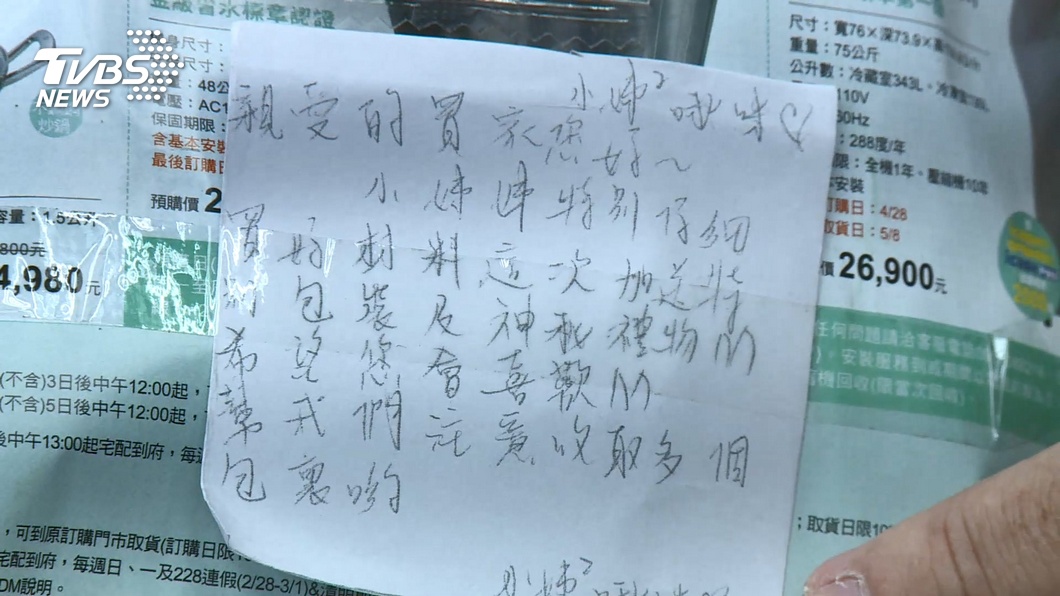 TVBS
NEWS
金級省水標章認證
尺寸：寬76×深73.9×
重量：75公斤
公升數：冷藏室343L、冷凍室
110V
60Hz
：288度/年
限：全機1年、壓縮機10年
安裝
訂購日：4/28
取貨日：5/8
價 26,900元
身尺寸：
尺寸：
：48公
壓：AC1
保固期限：
含基本安裝
最後訂購日
預購價 2
炒鍋
容量：1.5公升
800元
4,980元
小姊² 啾咪♡
親愛的買家您好～
小姊姊特別仔細
買好材料這次加送特
別包裝及神秘禮物!!!
希望您會喜歡!!!
幫我們註意收取多個
包裹喲
小姊²
(不含)3日後中午12:00起，
(不含)5日後中午12:00起，
後中午13:00起宅配到府，每週
，可到原訂購門市取貨(訂購日限
宅配到府，每週日、一及228連假(2/28-3/1)&清明
DM說明。
任何問題請洽客服電
，安裝服務到府
機回收(限當次回收)
；取貨日限10